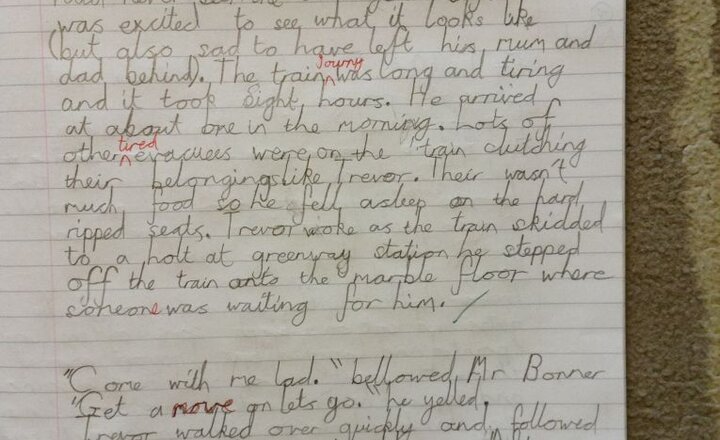 was excited to see what it looks like
(but also sad to have left his, mum and
dad behind). The train journy was long and tiring
and it took eight, hours. He arrived
at about one in the morning. Lots of
other tired evacuees were on the train clutching
their belongings like Trevor. Their wasn't
much food so he fell asleep on the hard
ripped seats. Trevor woke as the train skidded
to a holt at greenway station he stepped
off the train onto the marble floor where
someone was waiting for him.
"Come with me lad." bellowed Mr Bonner
"Get a move on lets go." he yelled.
Trevor walked over quickly and followed